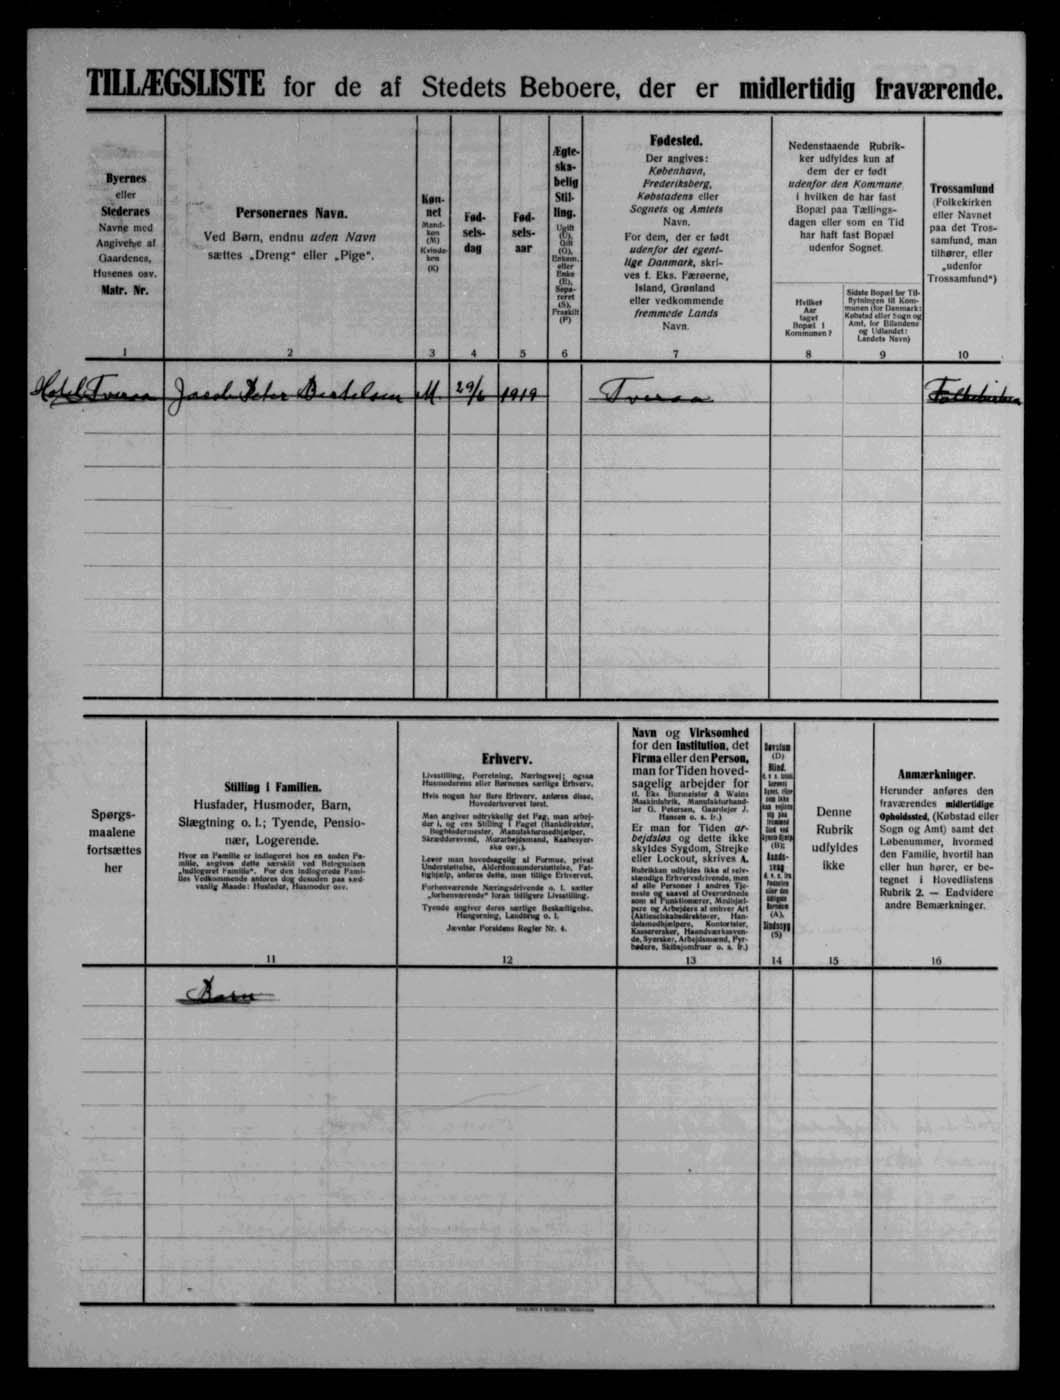 TILLÆGSLISTE for de af Stedets Beboere, der er midlertidig fraværende.
Byernes
eller
Stedernes
Navne med
Angivelse af
Gaardenes,
Husenes osv.
Matr. Nr.
Personernes Navn.
Ved Børn, endnu uden Navn
sættes „Dreng“ eller „Pige“.
Køn-
net
Mand-
køn
(M)
Kvinde-
køn
(K)
Fød-
sels-
dag
Fød-
sels-
aar
Ægte-
ska-
belig
Stil-
ling.
Ugift
(U),
Gift
(G),
Enkem.
eller
Enke
(E),
Sepa-
reret
(S),
Fraskilt
(F)
Fødested.
Der angives:
København,
Frederiksberg,
Købstadens eller
Sognets og Amtets
Navn.
For dem, der er født
udenfor det egent-
lige Danmark, skri-
ves f. Eks. Færøerne,
Island, Grønland
eller vedkommende
fremmede Lands
Navn.
Nedenstaaende Rubrik-
ker udfyldes kun af
dem der er født
udenfor den Kommune
i hvilken de har fast
Bopæl paa Tællings-
dagen eller som en Tid
har haft fast Bopæl
udenfor Sognet.
Hvilket
Aar
taget
Bopæl i
Kommunen?
Sidste Bopæl før Til-
flytningen til Kom-
munen (for Danmark:
Købstad eller Sogn og
Amt, for Bilandene
og Udlandet:
Landets Navn)
Trossamfund
(Folkekirken
eller Navnet
paa det Tros-
samfund, man
tilhører, eller
„udenfor
Trossamfund“)
1 2 3 4 5 6 7 8 9 10
Hotel Tveraa Jacob Peter Bertelsen M. 29/6 1919 Tveraa Folkekirken
Spørgs-
maalene
fortsættes
her
Stilling i Familien.
Husfader, Husmoder, Barn,
Slægtning o. l.; Tyende, Pensio-
nær, Logerende.
Hvor en Familie er indlogeret hos en anden Fa-
milie, angives dette særskilt ved Betegnelsen
„Indlogeret Familie“. For den indlogerede Fami-
lies Vedkommende anføres dog desuden paa sæd-
vanlig Maade: Husfader, Husmoder osv.
Erhverv.
Livsstilling, Forretning, Næringsvej; ogsaa
Husmoderens eller Børnenes særlige Erhverv.
Hvis nogen har flere Erhverv, anføres disse,
Hovederhvervet først.
Man angiver udtrykkelig det Fag, man arbej-
der i, og ens Stilling i Faget (Bankdirektør,
Bogbindermester, Manufakturmedhjælper,
Skræddersvend, Murarbejdsmand, Kaabesyer-
ske osv.).
Lever man hovedsagelig af Formue, privat
Understøttelse, Alderdomsunderstøttelse, Fat-
tighjælp, anføres dette, men tillige Erhvervet.
Forhenværende Næringsdrivende o. l. sætter
„forhenværende“ foran tidligere Livsstilling.
Tyende angiver deres særlige Beskæftigelse,
Husgerning, Landbrug o. l.
Jævnfør Forsidens Regler Nr. 4.
Navn og Virksomhed
for den Institution, det
Firma eller den Person,
man for Tiden hoved-
sagelig arbejder for
(f. Eks. Burmeister & Wains
Maskinfabrik, Manufakturhand-
ler G. Petersen, Gaardejer J.
Hansen o. s. fr.)
Er man for Tiden ar-
bejdsløs og dette ikke
skyldes Sygdom, Strejke
eller Lockout, skrives A.
Rubrikken udfyldes ikke af selv-
stændige Erhvervsdrivende, men
af alle Personer i andres Tje-
neste og saavel af Overordnede
som af Funktionærer, Medhjæl-
pere og Arbejdere af enhver Art
(Aktieselskabsdirektører, Han-
delsmedhjælpere, Kontorister,
Kassererskor, Haandværkssven-
de, Syersker, Arbejdsmænd, Fyr-
bødere, Skibsjomfruer o. s. fr.)
Døvstum
(D)
Blind,
(B);
Aands-
svag
(A),
Sindssyg
(S)
Denne
Rubrik
udfyldes
ikke
Anmærkninger.
Herunder anføres den
fraværendes midlertidige
Opholdssted, (Købstad eller
Sogn og Amt) samt det
Løbenummer, hvormed
den Familie, hvortil han
eller hun hører, er be-
tegnet i Hovedlistens
Rubrik 2. — Endvidere
andre Bemærkninger.
11 12 13 14 15 16
Barn